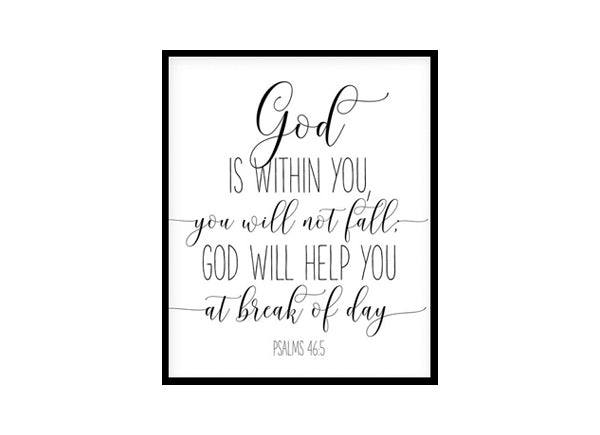 God
IS WITHIN YOU,
you will not fall;
GOD WILL HELP YOU
at break of day
PSALMS 46:5